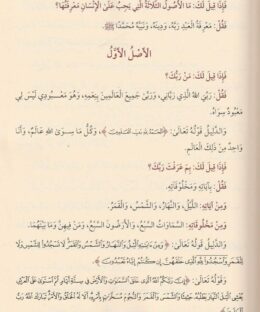 فَإِذَا قِيلَ لَكَ: مَا الأُصُولُ الثَّلَاثَةُ الَّتِي يَجِبُ عَلَى الْإِنْسَانِ مَعْرِفَتُهَا؟
فَقُلْ: مَعْرِفَةُ الْعَبْدِ رَبَّهُ، وَدِينَهُ، وَنَبِيَّهُ مُحَمَّدًا ﷺ.
الأَصْلُ الأَوَّلُ
فَإِذَا قِيلَ لَكَ: مَنْ رَبُّكَ؟
فَقُلْ: رَبِّيَ اللهُ الَّذِي رَبَّانِي، وَرَبَّى جَمِيعَ الْعَالَمِينَ بِنِعَمِهِ، وَهُوَ مَعْبُودِي لَيْسَ لِي
مَعْبُودٌ سِوَاهُ.
وَالدَّلِيلُ قَوْلُهُ تَعَالَى: ﴿الْحَمْدُ لِلَّهِ رَبِّ الْعَالَمِينَ﴾، وَكُلُّ مَا سِوَى اللهِ عَالَمٌ، وَأَنَا
وَاحِدٌ مِنْ ذَلِكَ الْعَالَمِ.
فَإِذَا قِيلَ لَكَ: بِمَ عَرَفْتَ رَبَّكَ؟
فَقُلْ: بِآيَاتِهِ وَمَخْلُوقَاتِهِ.
وَمِنْ آيَاتِهِ: اللَّيْلُ، وَالنَّهَارُ، وَالشَّمْسُ، وَالْقَمَرُ.
وَمِنْ مَخْلُوقَاتِهِ: السَّمَاوَاتُ السَّبْعُ، وَالأَرَضُونَ السَّبْعُ، وَمَنْ فِيهِنَّ وَمَا بَيْنَهُمَا.
وَالدَّلِيلُ قَوْلُهُ تَعَالَى: ﴿وَمِنْ آيَاتِهِ اللَّيْلُ وَالنَّهَارُ وَالشَّمْسُ وَالْقَمَرُ لَا تَسْجُدُوا لِلشَّمْسِ وَلَا
لِلْقَمَرِ وَاسْجُدُوا لِلَّهِ الَّذِي خَلَقَهُنَّ إِنْ كُنْتُمْ إِيَّاهُ تَعْبُدُونَ﴾.
وَقَوْلُهُ تَعَالَى: ﴿إِنَّ رَبَّكُمُ اللَّهُ الَّذِي خَلَقَ السَّمَاوَاتِ وَالْأَرْضَ فِي سِتَّةِ أَيَّامٍ ثُمَّ اسْتَوَى عَلَى الْعَرْشِ
يُغْشِي اللَّيْلَ النَّهَارَ يَطْلُبُهُ حَثِيثًا وَالشَّمْسَ وَالْقَمَرَ وَالنُّجُومَ مُسَخَّرَاتٍ بِأَمْرِهِ أَلَا لَهُ الْخَلْقُ وَالْأَمْرُ تَبَارَكَ اللَّهُ رَبُّ
الْعَالَمِينَ﴾.